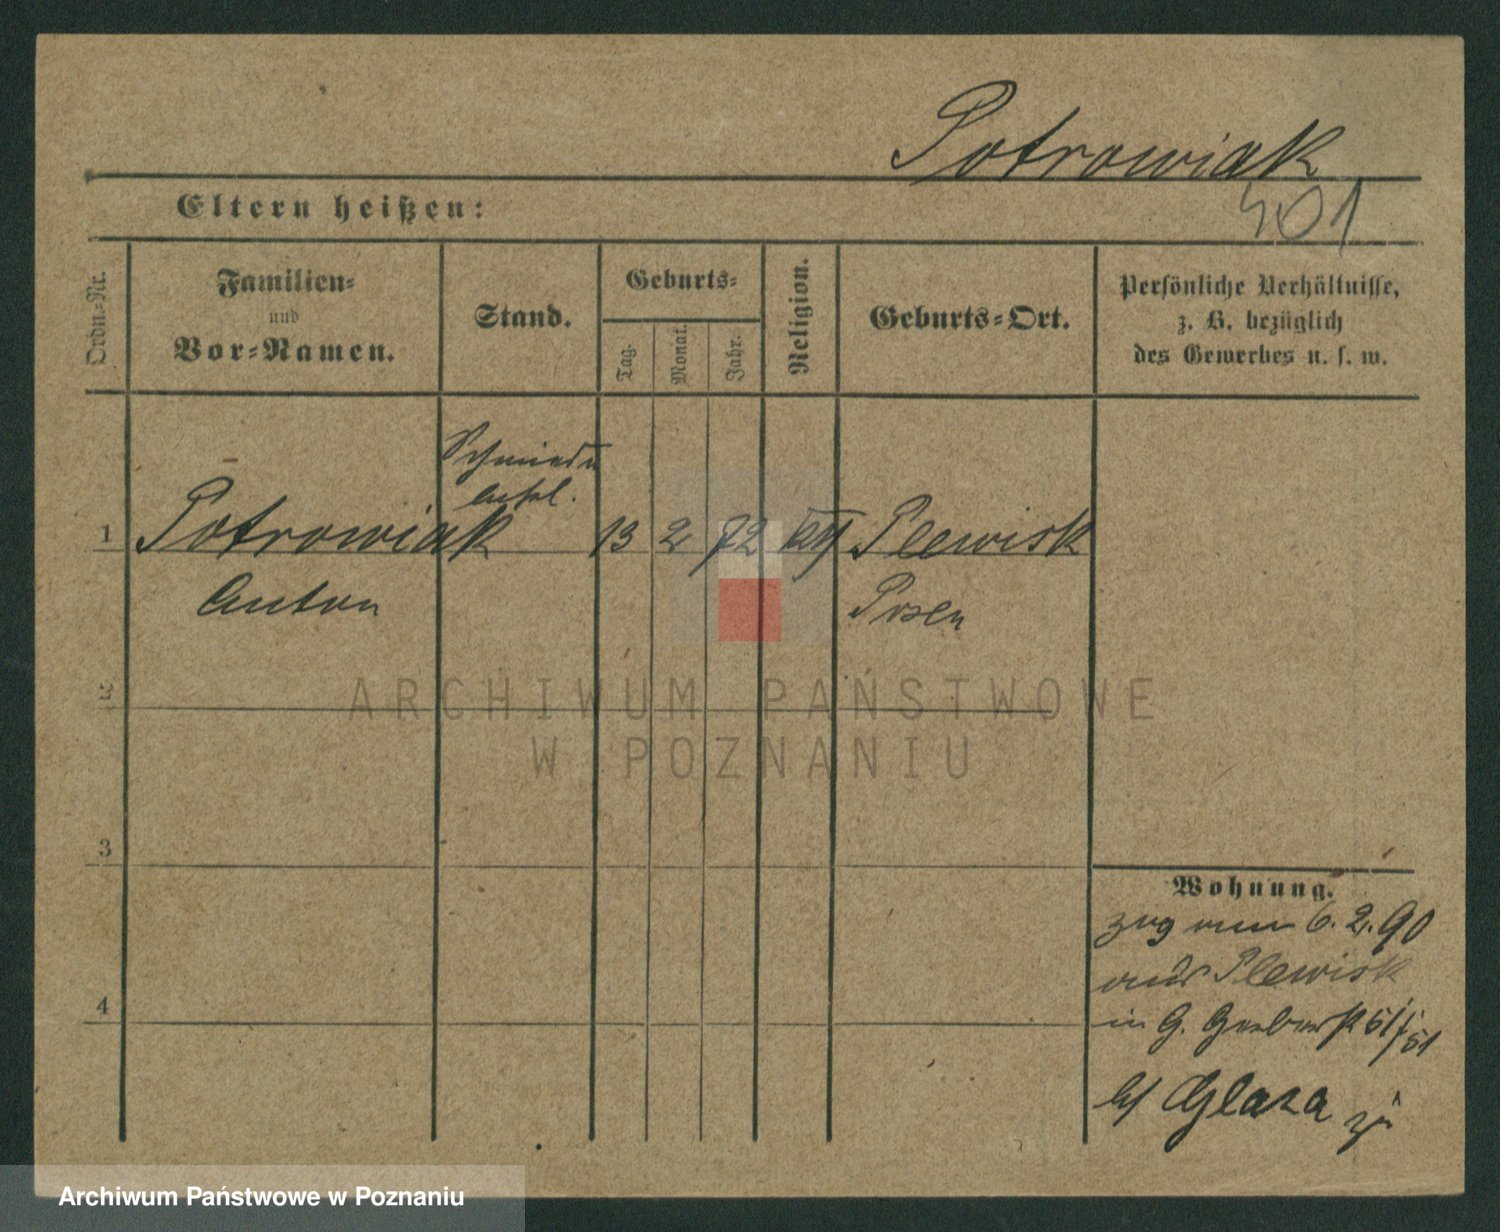 Potrowiak
Eltern heißen:
401
Ordn.-Nr.
Familien-
und
Vor-Namen.
Stand.
Geburts-
Tag.
Monat.
Jahr.
Religion.
Geburts-Ort.
Persönliche Verhältnisse,
z. B. bezüglich
des Gewerbes u. s. w.
Schmiede
1 Potrowiak 13 2 72 kath Plewisk
Anton Posen
2
3
4
Wohnung.
zug vom 6. 2. 90
aus Plewisk
in G. Gerberst 51/51
b/ Glaza
ARCHIWUM PAŃSTWOWE
W POZNANIU
Archiwum Państwowe w Poznaniu